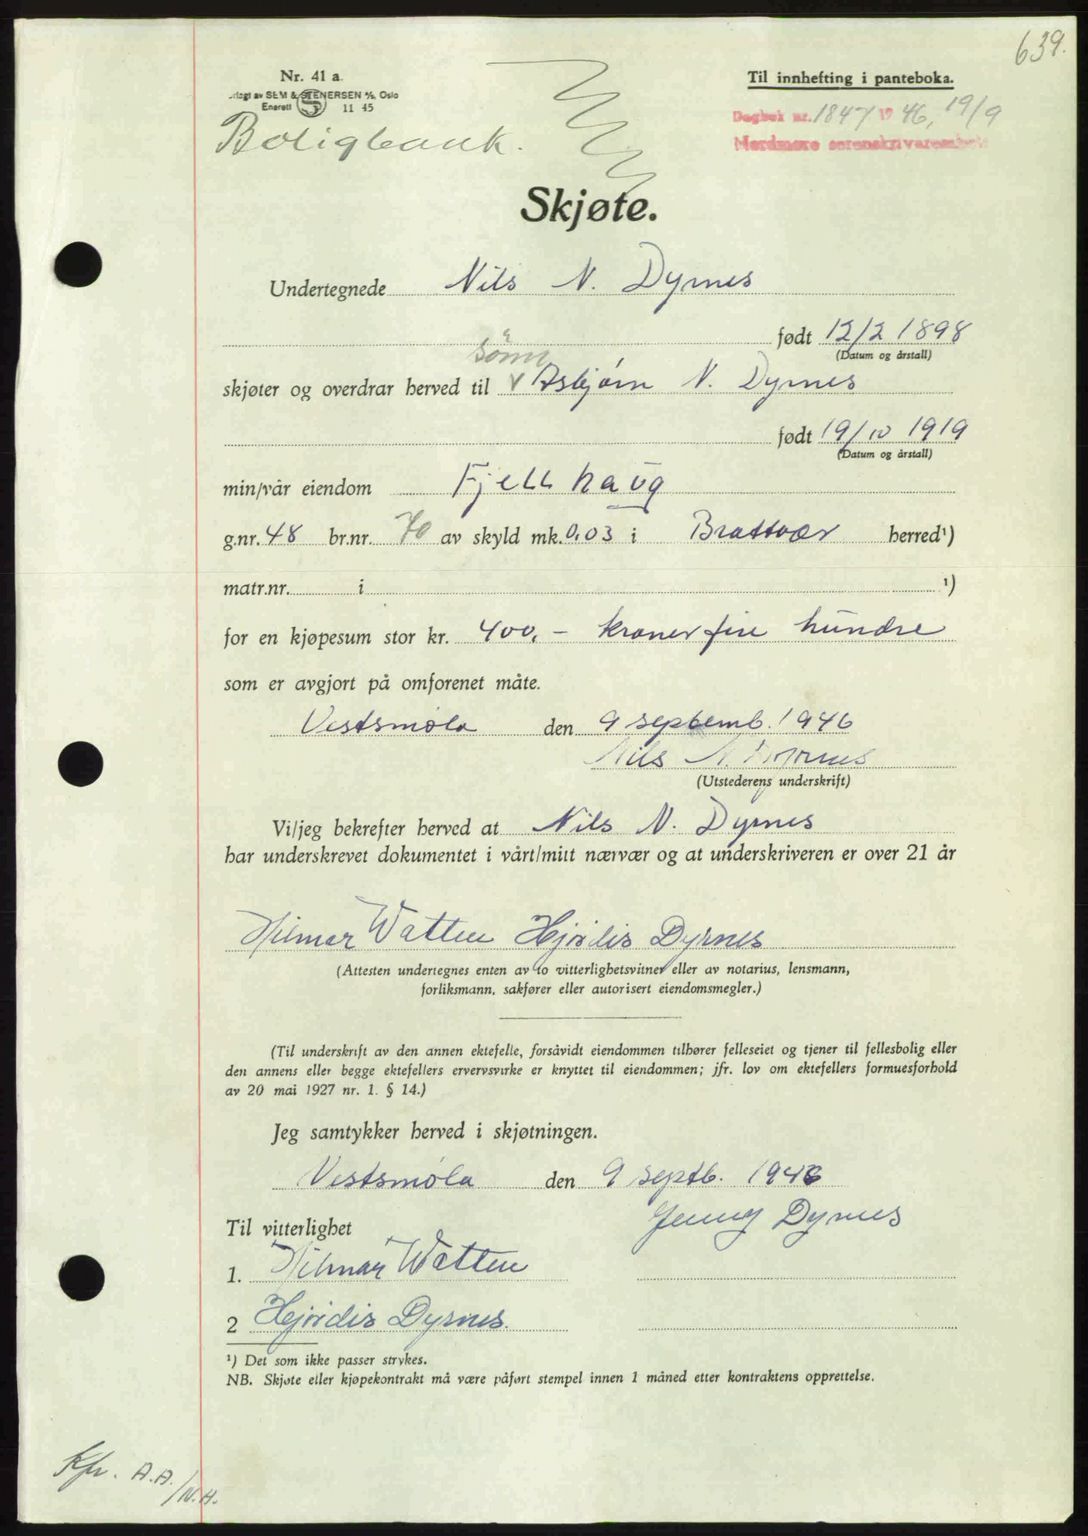 639.
Nr. 41 a.
SEM & STENERSEN A/S, Oslo
Enerett S 11 45
Til innhefting i panteboka.
Boligbank.
Dagbok nr. 1847 1946, 19/9
Nordmøre sorenskriverembete
Skjøte.
Undertegnede Nils N. Dyrnes
født 12/2 1898
(Datum og årstall)
sønn
skjøter og overdrar herved til V Asbjørn N. Dyrnes
født 19/10 1919
(Datum og årstall)
min/vår eiendom Fjellhaug
g.nr. 48 br.nr. 70 av skyld mk. 0.03 i Brattvær herred¹)
matr.nr. i ¹)
for en kjøpesum stor kr. 400,- kroner fire hundre
som er avgjort på omforenet måte.
Vestsmøla den 9 septemb. 1946
Nils N. Dyrnes
(Utstederens underskrift)
Vi/jeg bekrefter herved at Nils N. Dyrnes
har underskrevet dokumentet i vårt/mitt nærvær og at underskriveren er over 21 år
Hilmar Watten Hjørdis Dyrnes
(Attesten undertegnes enten av to vitterlighetsvitner eller av notarius, lensmann,
forliksmann, sakfører eller autorisert eiendomsmegler.)
(Til underskrift av den annen ektefelle, forsåvidt eiendommen tilhører felleseiet og tjener til fellesbolig eller
den annens eller begge ektefellers ervervsvirke er knyttet til eiendommen; jfr. lov om ektefellers formuesforhold
av 20 mai 1927 nr. 1. § 14.)
Jeg samtykker herved i skjøtningen.
Vestsmøla den 9 septb. 1946
Jenny Dyrnes
Til vitterlighet
1. Hilmar Watten
2 Hjørdis Dyrnes.
¹) Det som ikke passer strykes.
NB. Skjøte eller kjøpekontrakt må være påført stempel innen 1 måned etter kontraktens opprettelse.
Kfr. A.A./N.H.